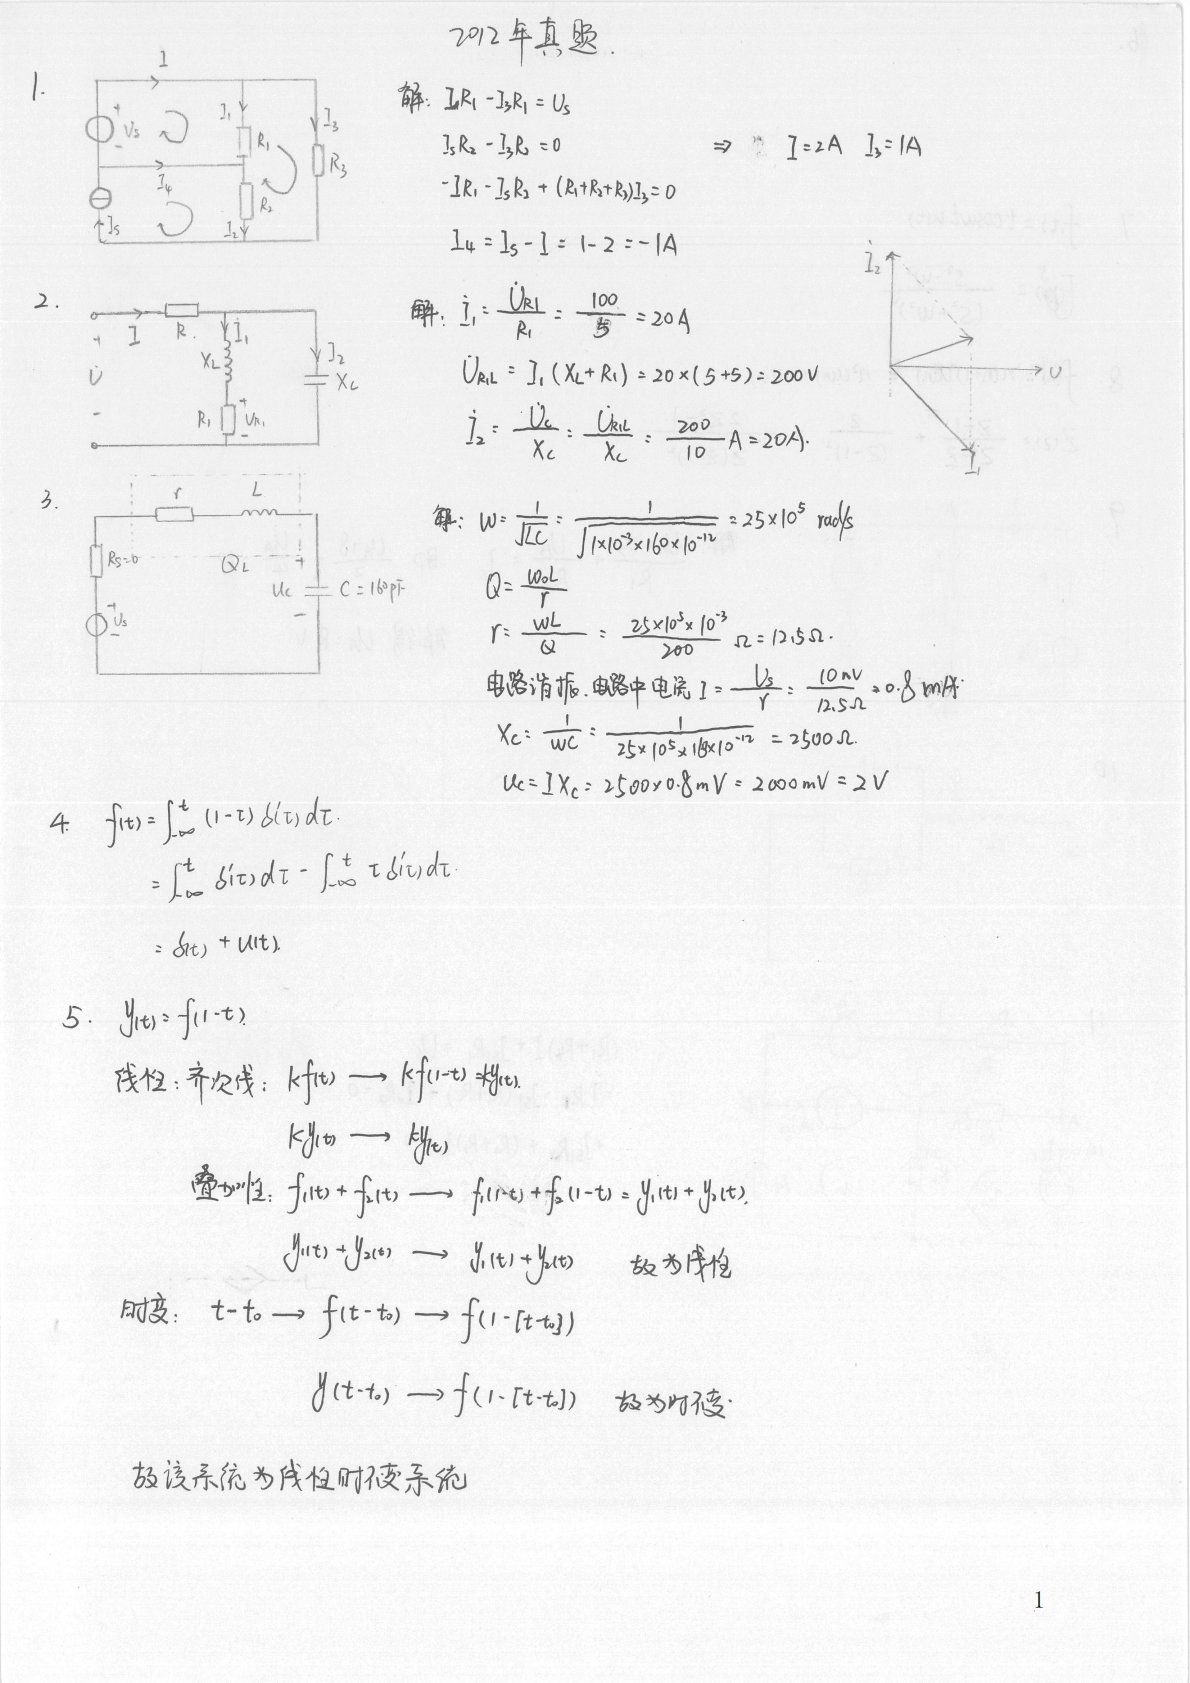 2012年真题.
1.
I
Vs
I₁
R₁
I₃
R₃
I₄
R₂
Is
I₂
解: I₁R₁ - I₃R₁ = Us
IsR₂ - I₃R₂ = 0 ⇒ I = 2A I₃ = 1A
-IR₁ - IsR₂ + (R₁+R₂+R₃)I₃ = 0
I₄ = Is - I = 1 - 2 = -1A
2.
I
R
İ₁
XL
İ₂
XC
U̇
R₁
UR₁
解: İ₁ = U̇R1/R₁ = 100/5 = 20A
U̇R1L = İ₁(XL + R₁) = 20×(5+5) = 200V
İ₂ = U̇c/Xc = U̇R1L/Xc = 200/10 A = 20A.
İ₂
U
İ₁
3.
r
L
Rs=0
QL
Us
Uc
C = 160pF
解: W = 1/√LC = 1/√(1×10⁻³×160×10⁻¹²) = 25×10⁵ rad/s
Q = W₀L/r
r = WL/Q = 25×10⁵×10⁻³/200 Ω = 12.5Ω.
电路谐振.电路中电流 I = Us/r = 10mV/12.5Ω = 0.8mA.
Xc = 1/WC = 1/(25×10⁵×160×10⁻¹²) = 2500Ω.
Uc = IXc = 2500×0.8mV = 2000mV = 2V
4. f(t) = ∫₋∞ᵗ (1-τ)δ'(τ)dτ.
= ∫₋∞ᵗ δ'(τ)dτ - ∫₋∞ᵗ τδ'(τ)dτ.
= δ(t) + u(t).
5. y(t) = f(1-t).
线性: 齐次线: kf(t) ⟶ kf(1-t) = ky(t).
ky(t) ⟶ ky(t)
叠加性: f₁(t) + f₂(t) ⟶ f₁(1-t) + f₂(1-t) = y₁(t) + y₂(t).
y₁(t) + y₂(t) ⟶ y₁(t) + y₂(t) 故为线性
时变: t-t₀ ⟶ f(t-t₀) ⟶ f(1-[t-t₀])
y(t-t₀) ⟶ f(1-[t-t₀]) 故为时不变.
故该系统为线性时不变系统
1